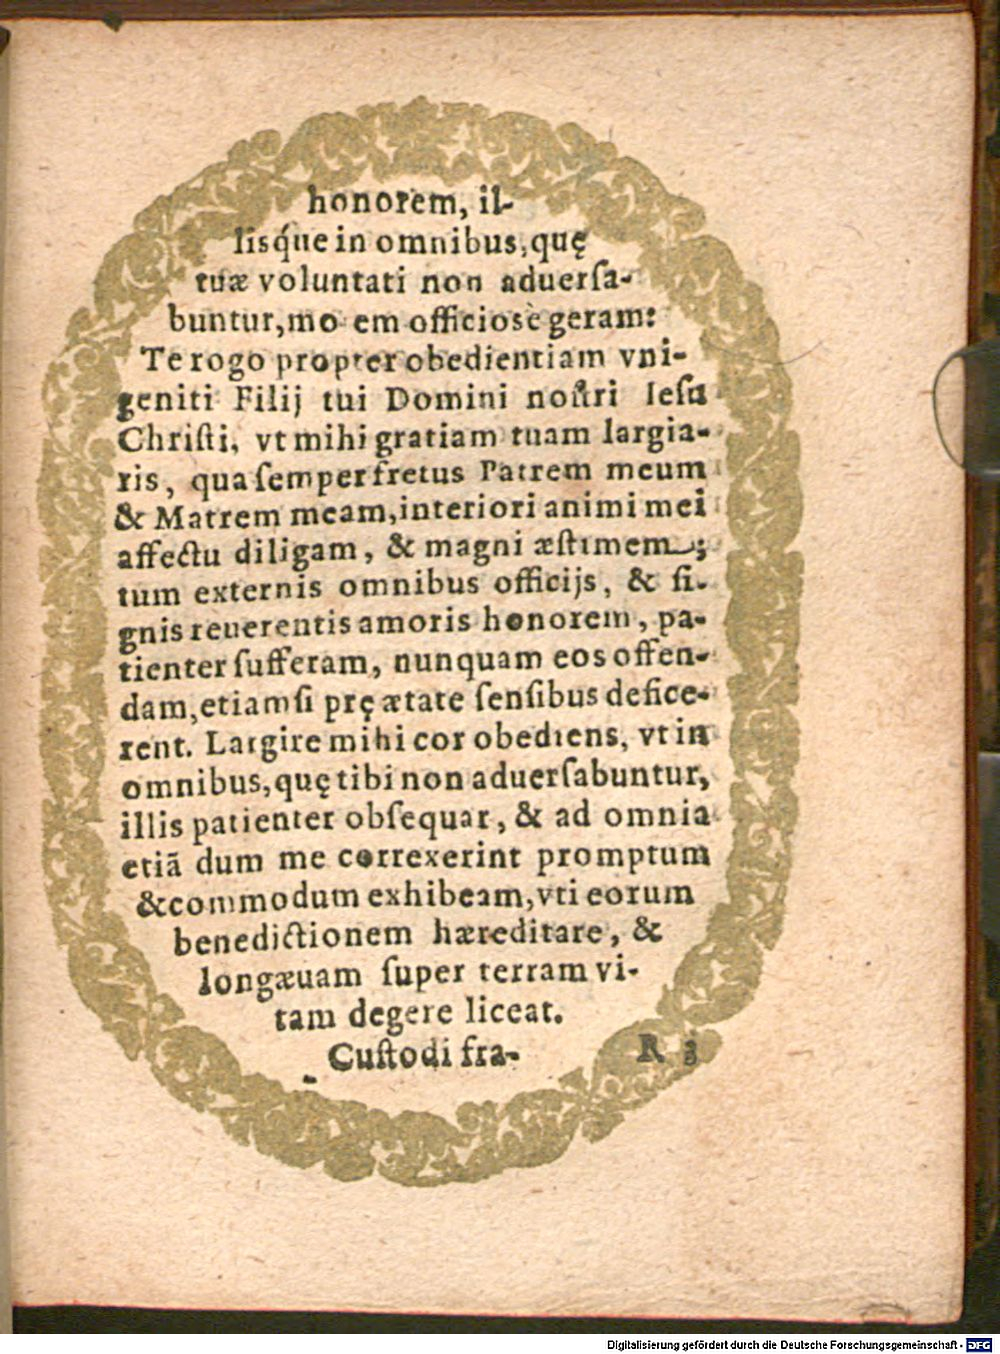 honorem, il-
lisq́ue in omnibus, quę
tuæ voluntati non aduersa-
buntur, mo em officiosè geram:
Te rogo propter obedientiam vni-
geniti Filij tui Domini nostri Iesu
Christi, vt mihi gratiam tuam largia-
ris, qua semper fretus Patrem meum
& Matrem meam, interiori animi mei
affectu diligam, & magni æstimem;
tum externis omnibus officijs, & si-
gnis reuerentis amoris honorem, pa-
tienter sufferam, nunquam eos offen-
dam, etiamsi prę ætate sensibus defice-
rent. Largire mihi cor obediens, vt in
omnibus, quę tibi non aduersabuntur,
illis patienter obsequar, & ad omnia
etiã dum me correxerint promptum
& commodum exhibeam, vti eorum
benedictionem hæreditare, &
longæuam super terram vi-
tam degere liceat.
Custodi fra-
R 3
Digitalisierung gefördert durch die Deutsche Forschungsgemeinschaft - DFG